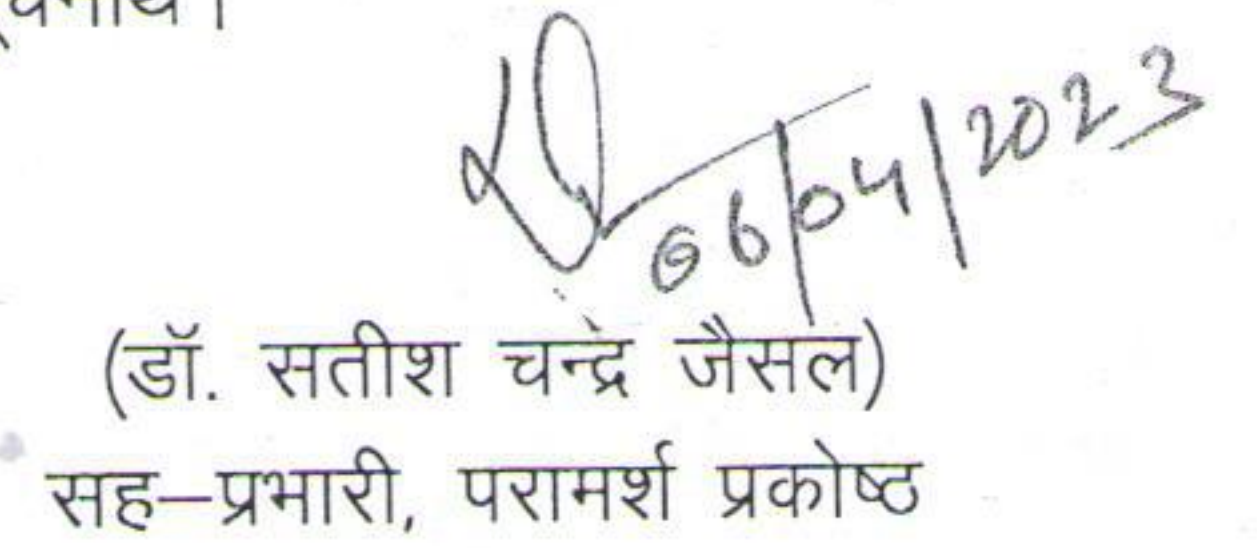 06/04/2023
(डॉ. सतीश चन्द्र जैसल)
सह–प्रभारी, परामर्श प्रकोष्ठ